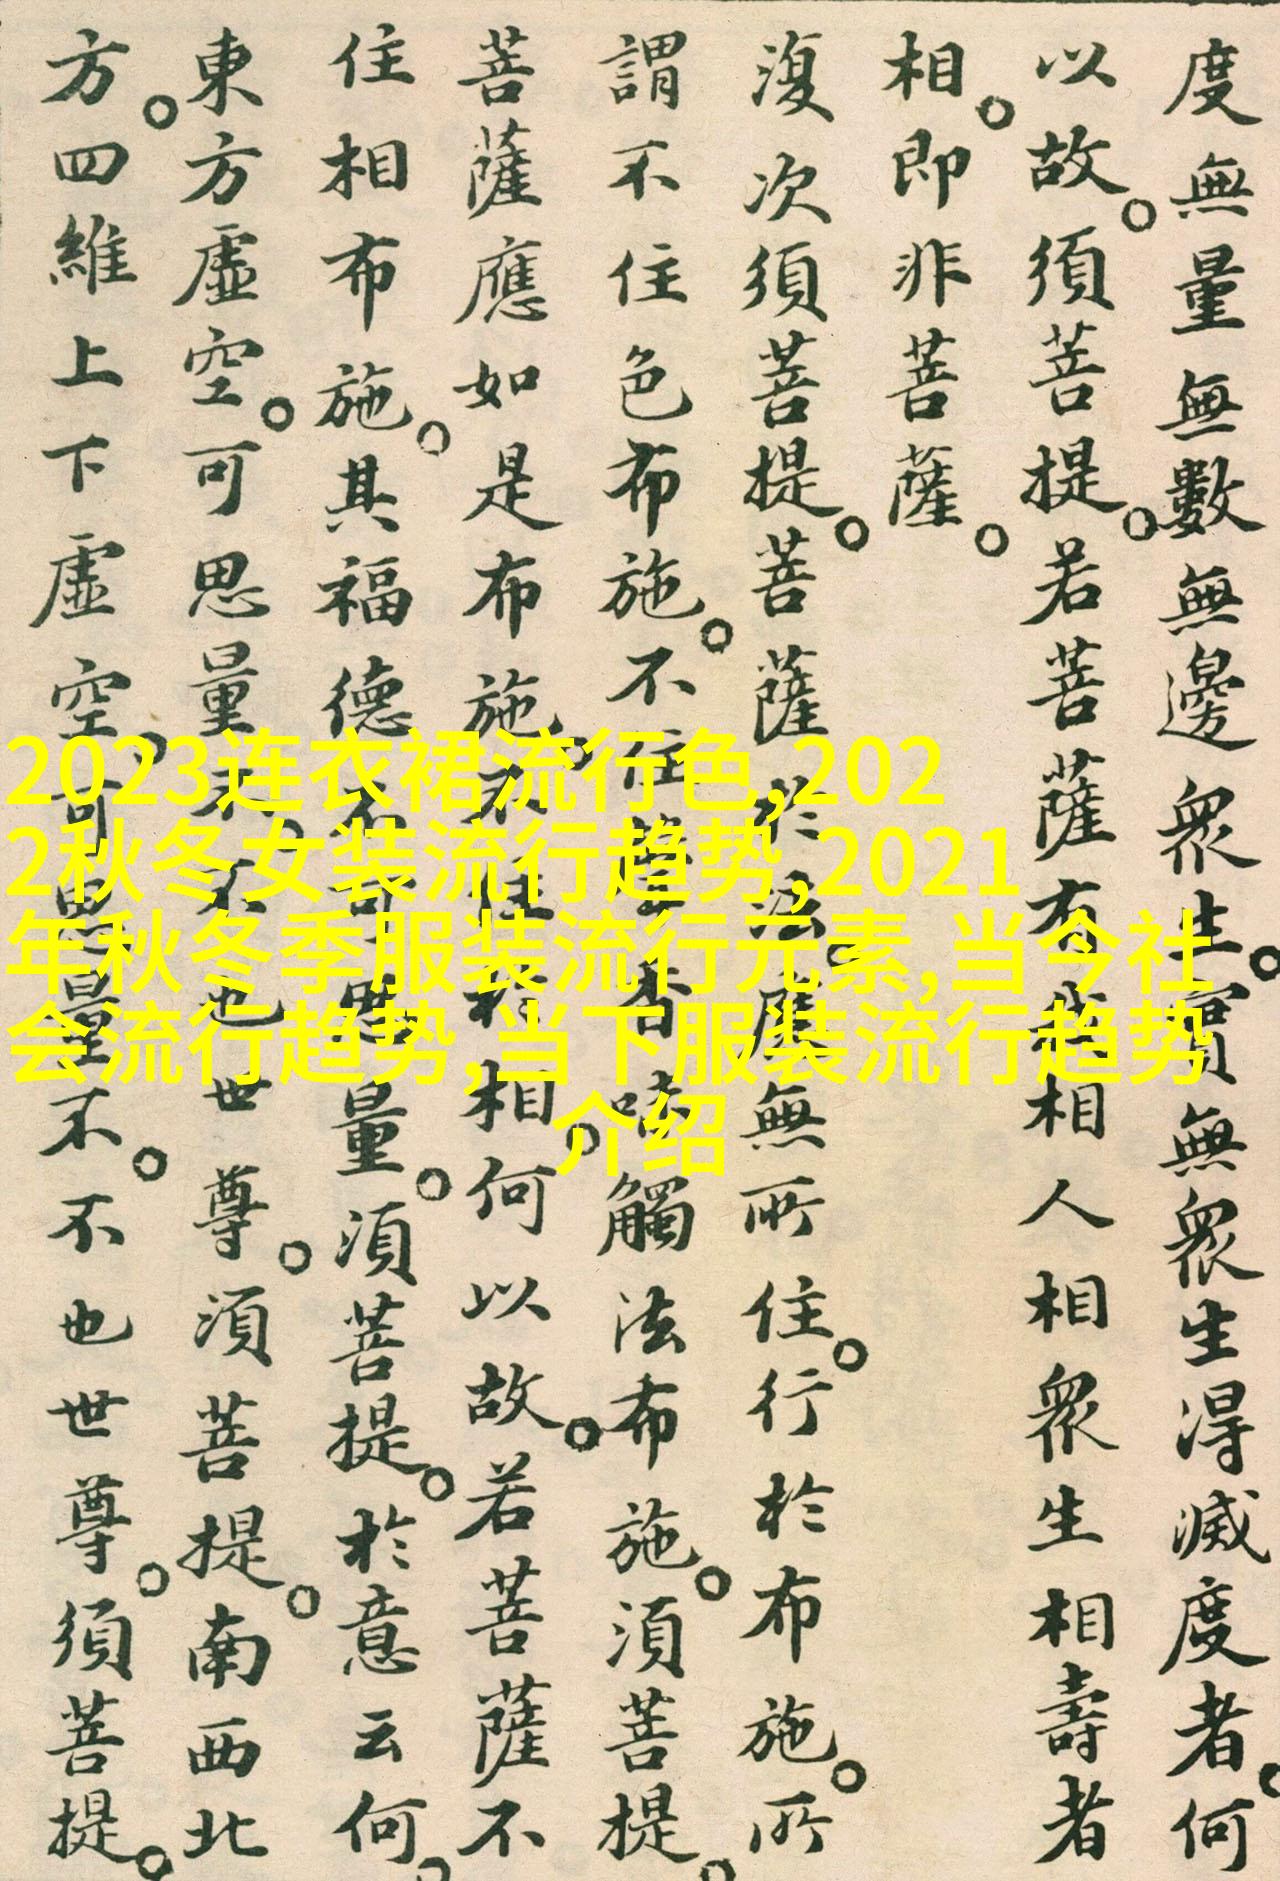 度無量無數無邊眾生。實無眾生得滅度者。何
以故。須菩提。若菩薩有我相人相眾生相壽者
相。即非菩薩。
復次須菩提。菩薩於法應無所住。行於布施。所
謂不住色布施。不住聲香味觸法布施。須菩提。
菩薩應如是布施。不住於相。何以故。若菩薩不
住相布施。其福德不可思量。須菩提。於意云何。
東方虛空。可思量不。不也世尊。須菩提。南西北
方。四維上下虛空。可思量不。不也世尊。須菩提。
2023连衣裙流行色,202
2秋冬女装流行趋势,2021
年秋冬季服装流行元素,当今社
会流行趋势,当下服装流行趋势
介绍